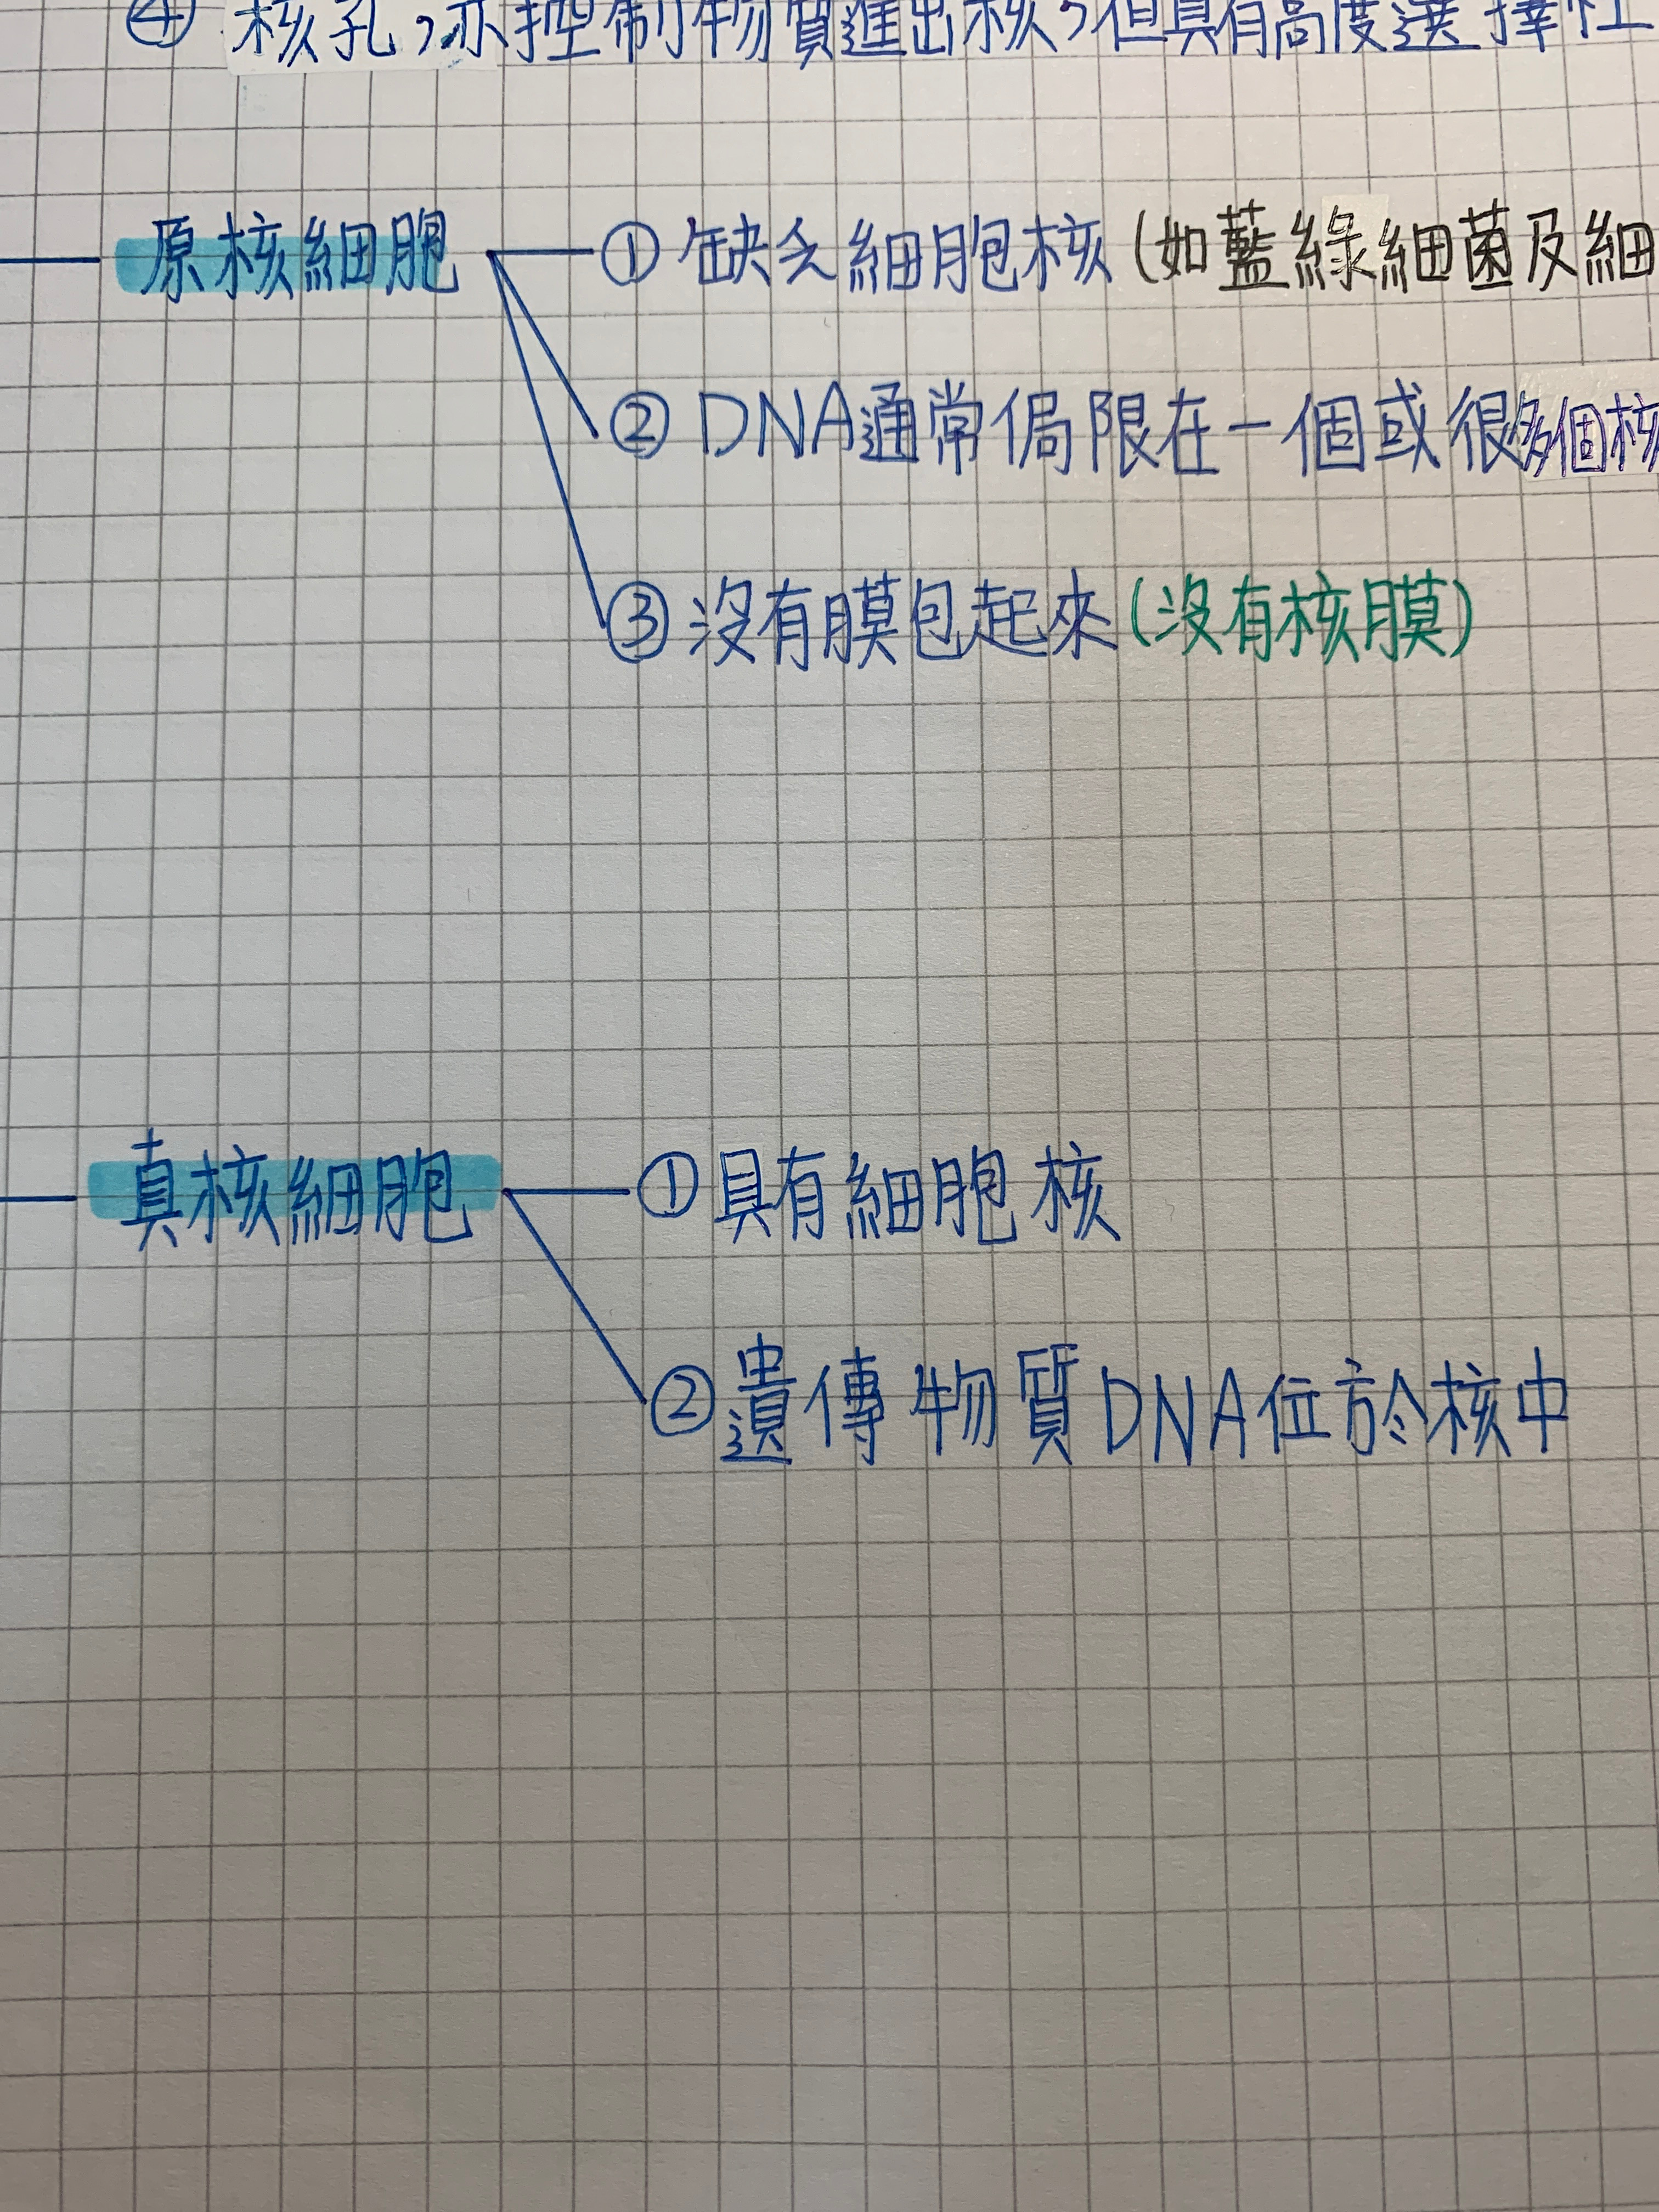 ④ 核孔,亦控制物質進出核,但具有高度選擇性
原核細胞
① 缺乏細胞核(如藍綠細菌及細
② DNA通常侷限在一個或很多個核
③ 沒有膜包起來(沒有核膜)
真核細胞
① 具有細胞核
② 遺傳物質DNA位於核中